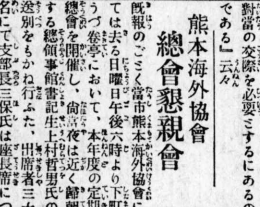 對當の交際を必要とするにあるの
である』云
熊本海外協會
總會懇親會
既報のごとく當市熊本海外協會に
ては去る日曜日午後六時より下町
うづ卷亭において、本年度の定期
總會を開催し、尙當夜は近く歸朝
する總領事館書記生上村哲男氏の
送別をもかね行ふた、出席者三
名にて支部長三保氏は座長席につ